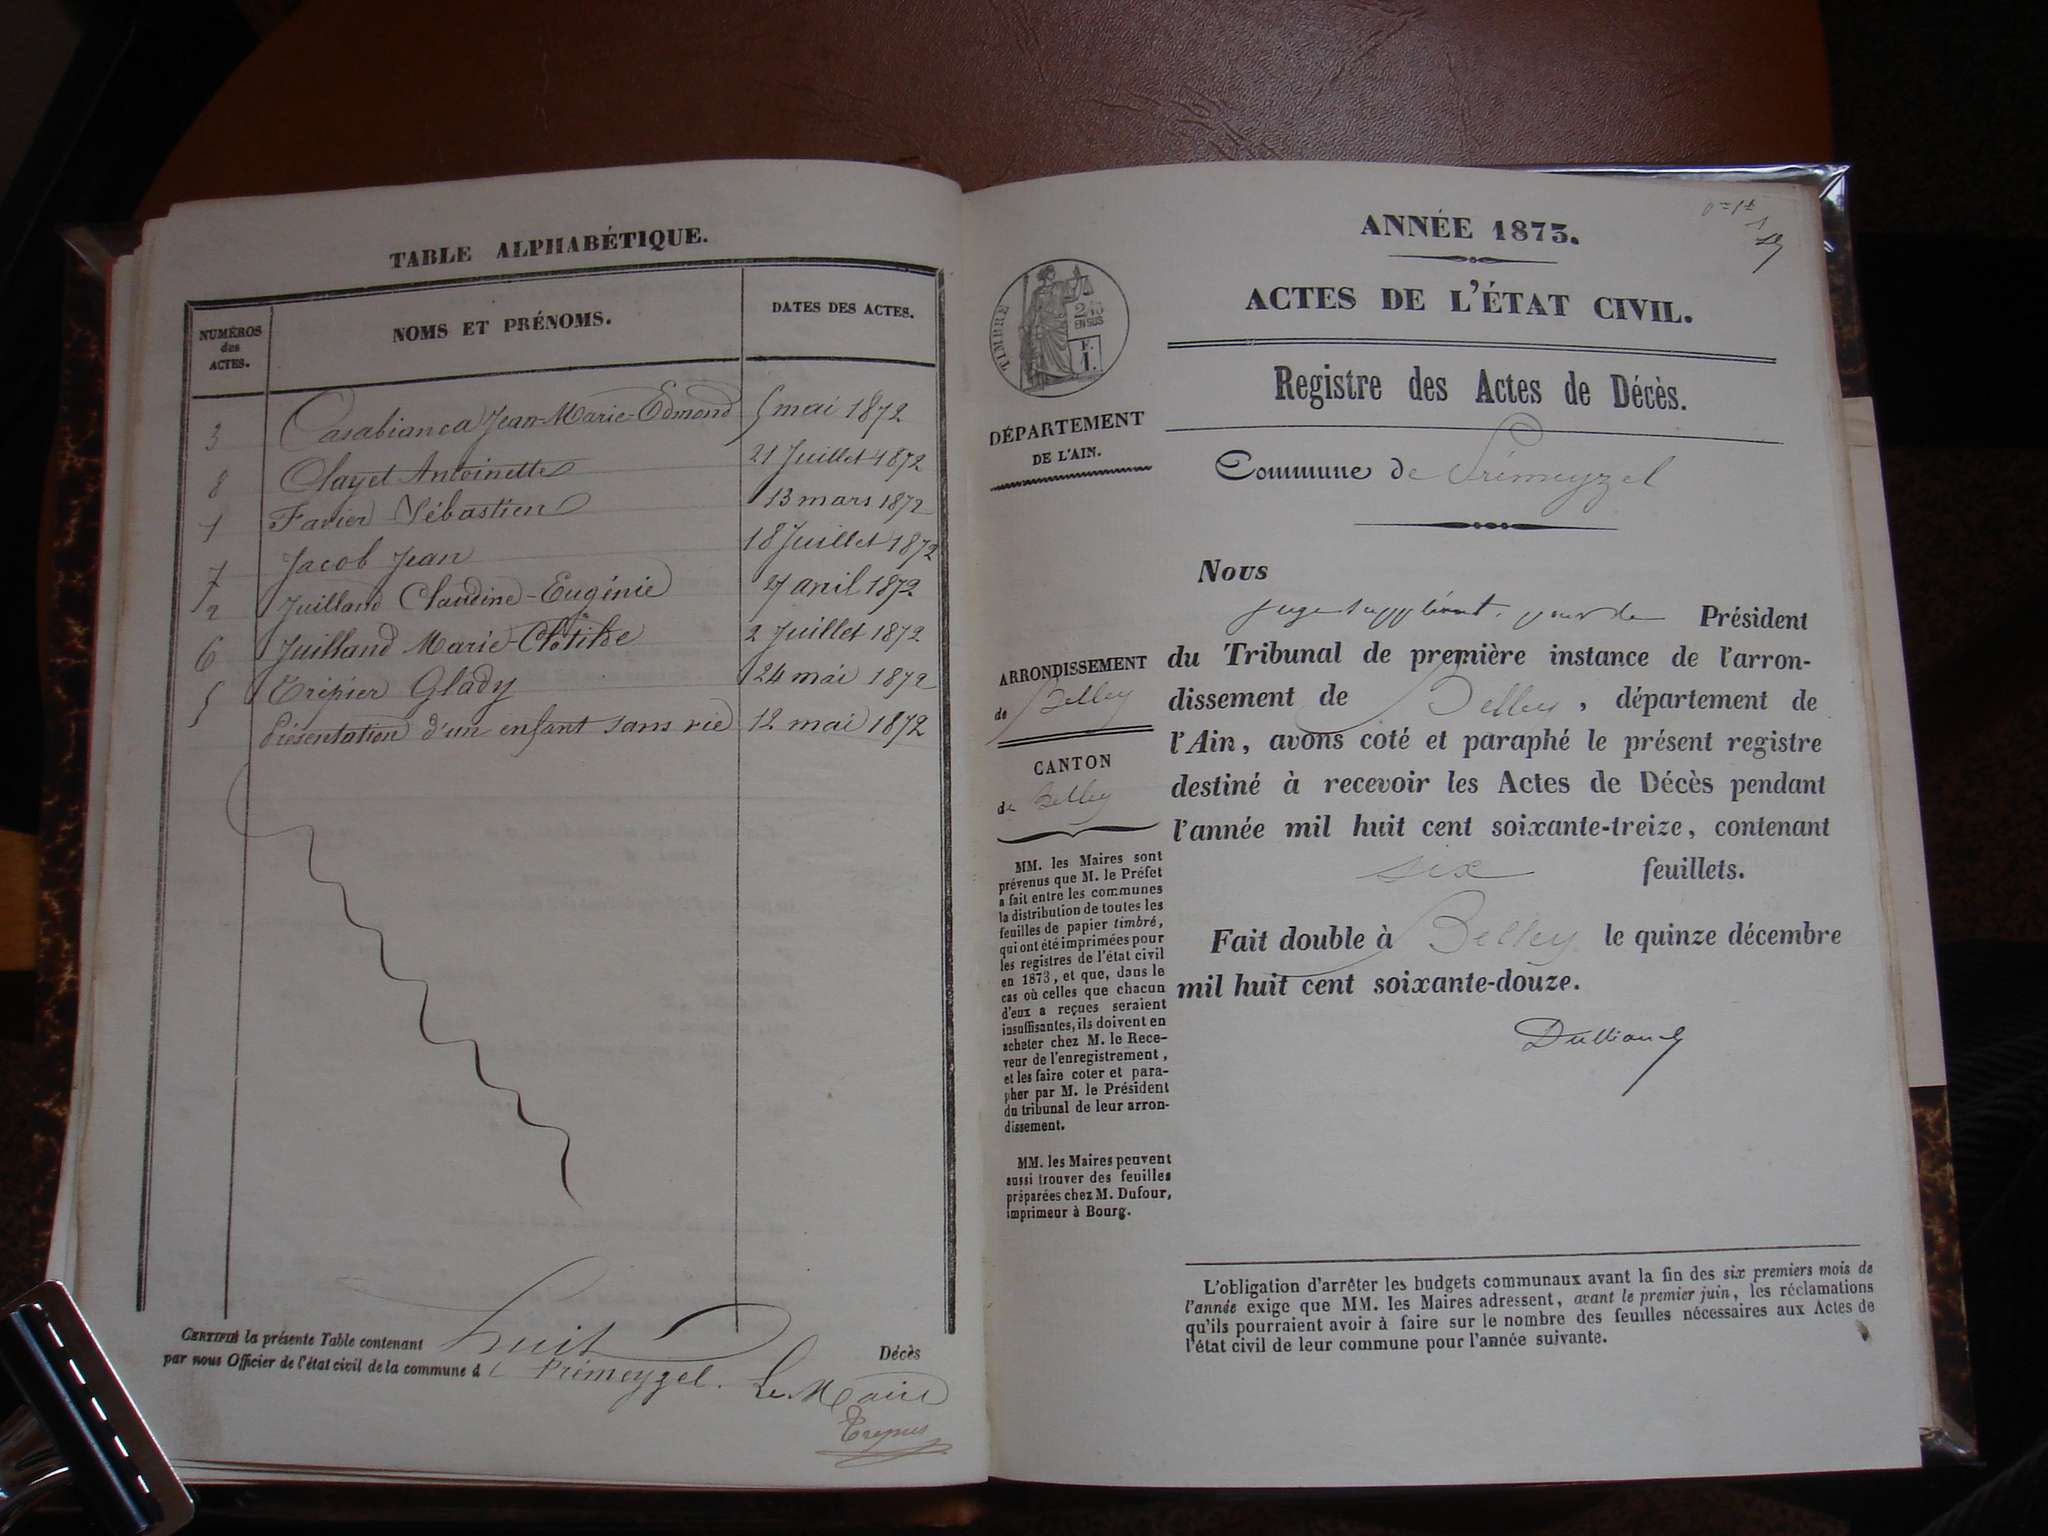 TABLE ALPHABÉTIQUE.
NUMÉROS des ACTES.
NOMS ET PRÉNOMS.
DATES DES ACTES.
3 Casabianca Jean-Marie-Edmond 5 mai 1872
8 Clayet Antoinette 21 Juillet 1872
1 Favier Sébastien 13 mars 1872
7 Jacob Jean 18 Juillet 1872
2 Juilland Claudine-Eugénie 27 avril 1872
6 Juilland Marie-Clotilde 2 Juillet 1872
5 Trépier Glady 24 mai 1872
Présentation d'un enfant sans vie 12 mai 1872
CERTIFIÉ la présente Table contenant huit Décès
par nous Officier de l'état civil de la commune de Prémeyzel. Le Maire
ANNÉE 1873.
ACTES DE L'ÉTAT CIVIL.
Registre des Actes de Décès.
TIMBRE
EN SUS
F.
1.
DÉPARTEMENT
DE L'AIN.
Commune de Prémeyzel
ARRONDISSEMENT
de Belley
CANTON
de Belley
MM. les Maires sont
prévenus que M. le Préfet
a fait entre les communes
la distribution de toutes les
feuilles de papier timbré,
qui ont été imprimées pour
les registres de l'état civil
en 1873, et que, dans le
cas où celles que chacun
d'eux a reçues seraient
insuffisantes, ils doivent en
acheter chez M. le Rece-
veur de l'enregistrement,
et les faire coter et para-
pher par M. le Président
du tribunal de leur arron-
dissement.
MM. les Maires peuvent
aussi trouver des feuilles
préparées chez M. Dufour,
imprimeur à Bourg.
Nous
juge suppléant, pour le Président
du Tribunal de première instance de l'arron-
dissement de Belley, département de
l'Ain, avons coté et paraphé le présent registre
destiné à recevoir les Actes de Décès pendant
l'année mil huit cent soixante-treize, contenant
six feuillets.
Fait double à Belley le quinze décembre
mil huit cent soixante-douze.
L'obligation d'arrêter les budgets communaux avant la fin des six premiers mois de
l'année exige que MM. les Maires adressent, avant le premier juin, les réclamations
qu'ils pourraient avoir à faire sur le nombre des feuilles nécessaires aux Actes de
l'état civil de leur commune pour l'année suivante.